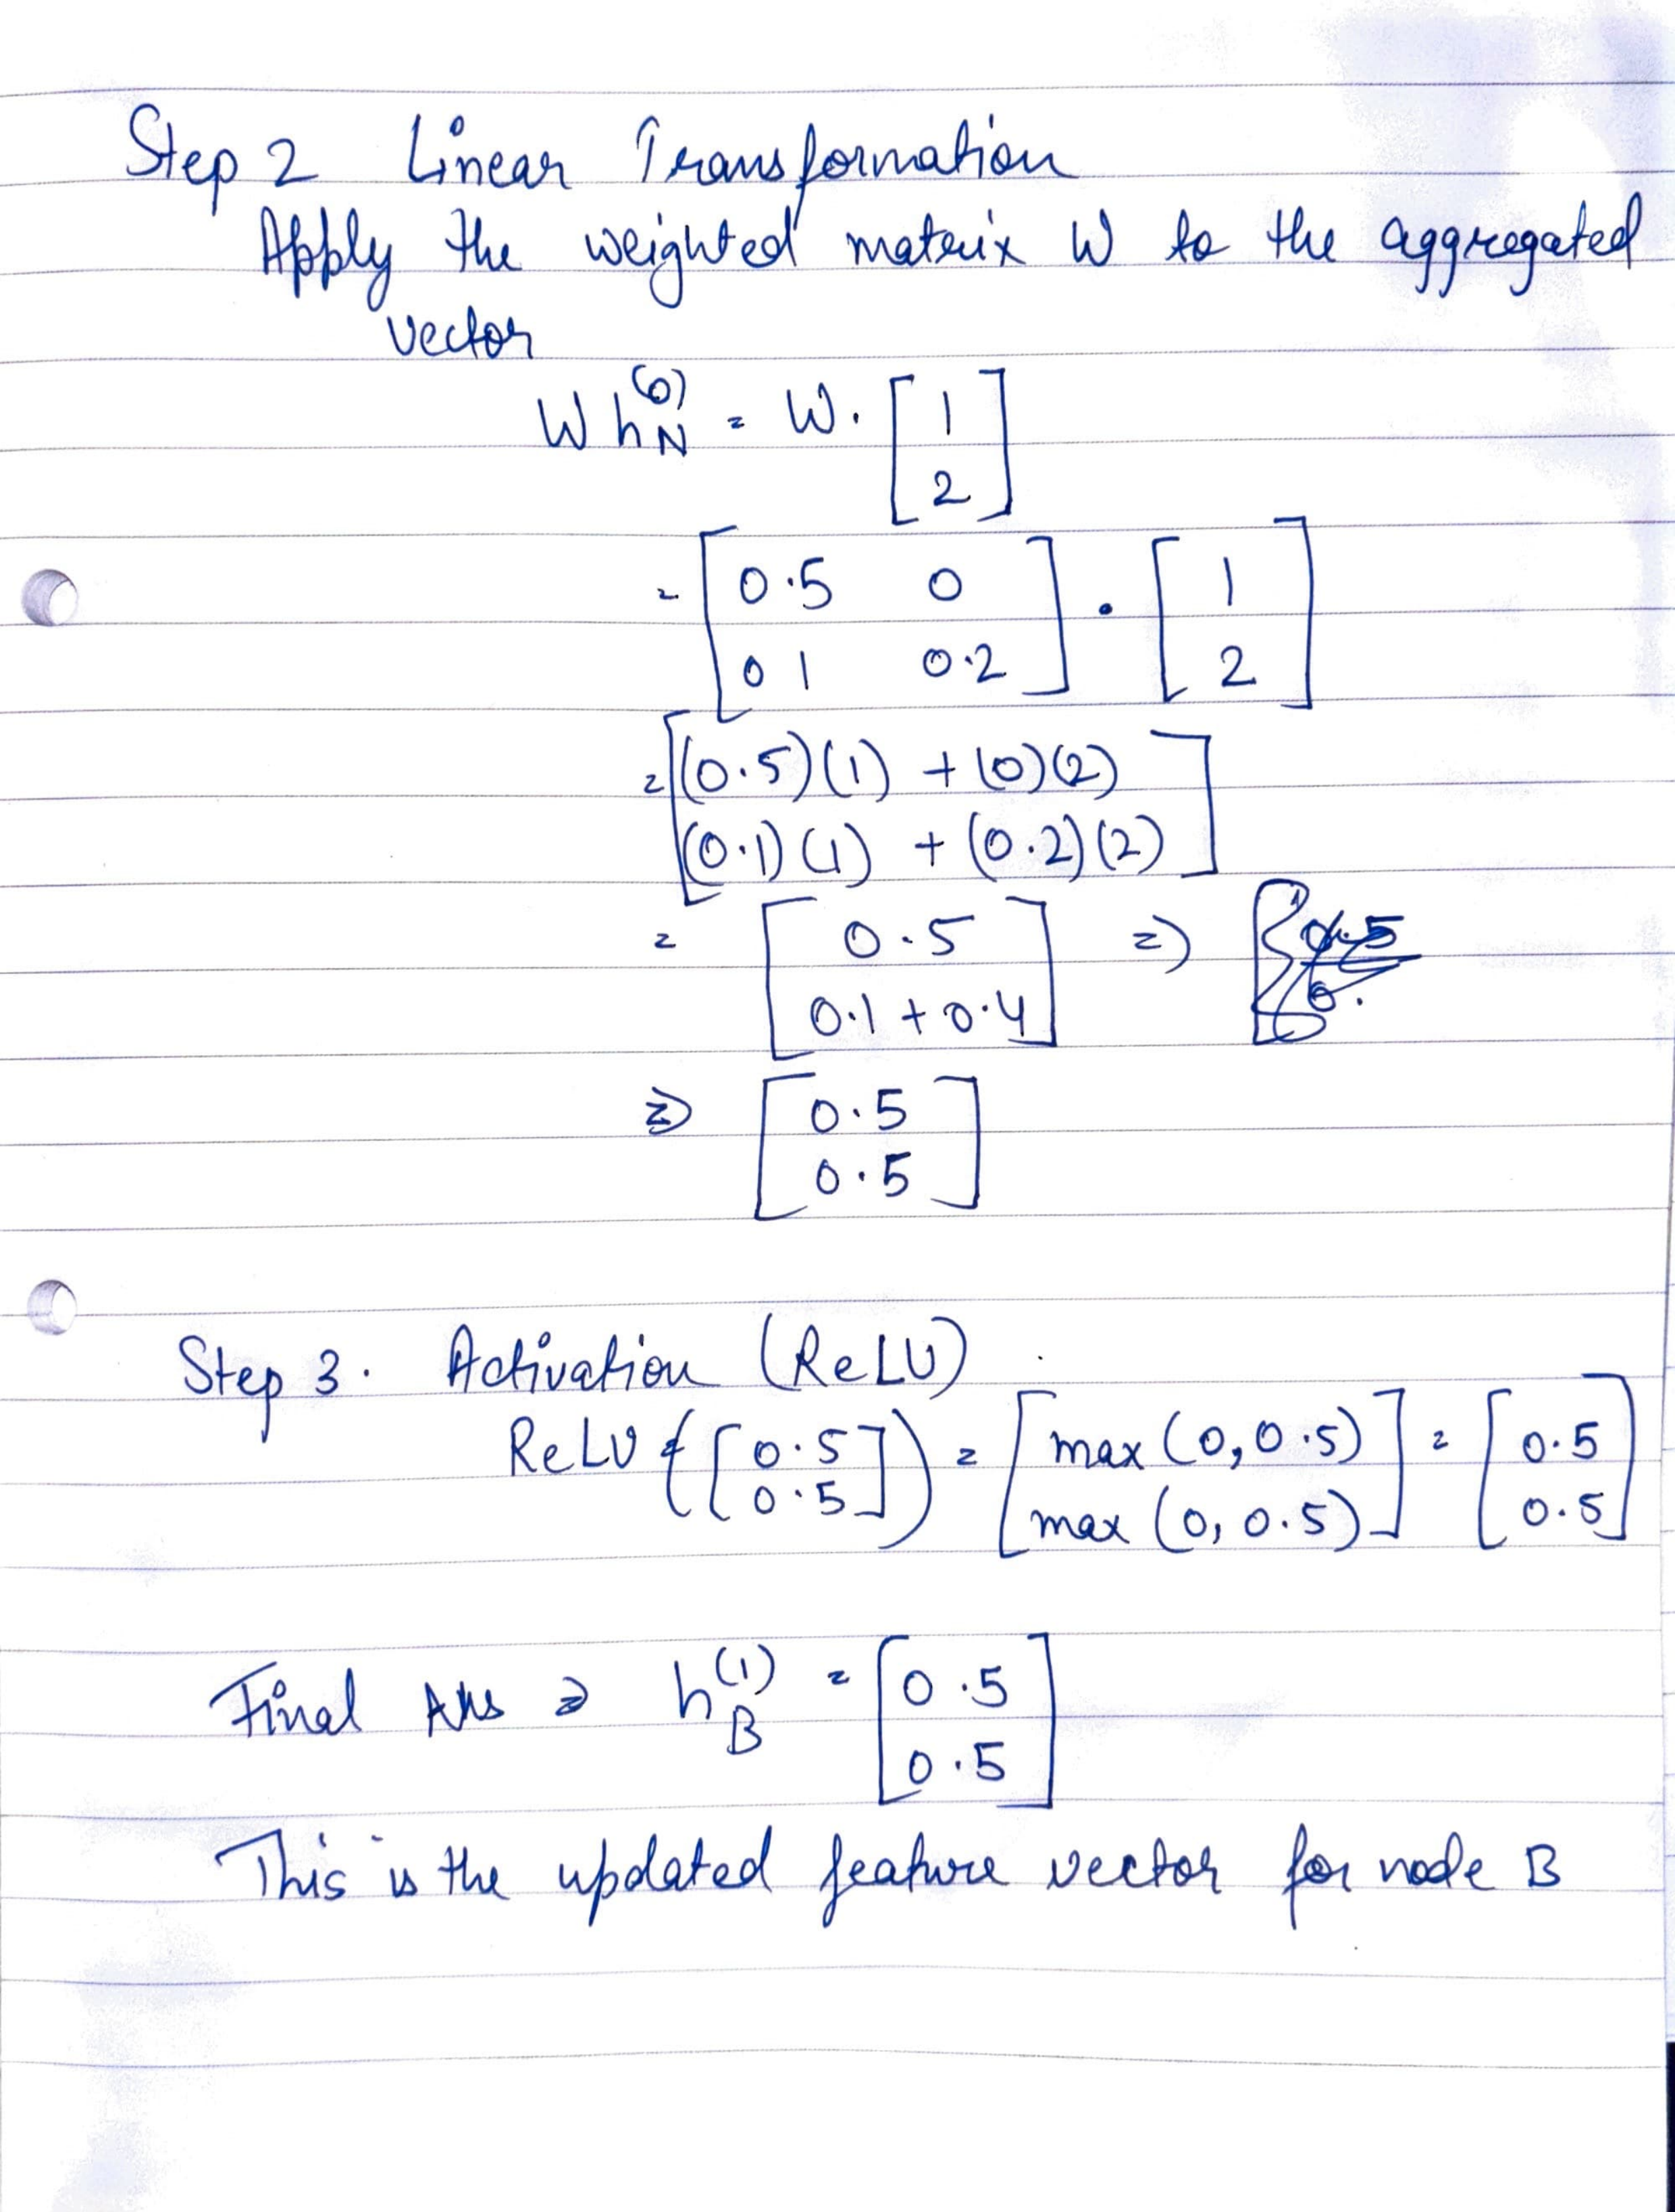 Step 2 Linear Transformation
Apply the weighted matrix W to the aggregated
vector
W h_N^(0) = W. [ 1
2 ]
= [ 0.5 0
0 1 0.2 ] . [ 1
2 ]
= [ (0.5)(1) + (0)(2)
(0.1)(1) + (0.2)(2) ]
= [ 0.5
0.1 + 0.4 ] =>
=> [ 0.5
0.5 ]
Step 3. Activation (ReLU)
ReLU ( [ 0.5
0.5 ] ) = [ max (0, 0.5)
max (0, 0.5) ] = [ 0.5
0.5 ]
Final Ans => h_B^(1) = [ 0.5
0.5 ]
This is the updated feature vector for node B